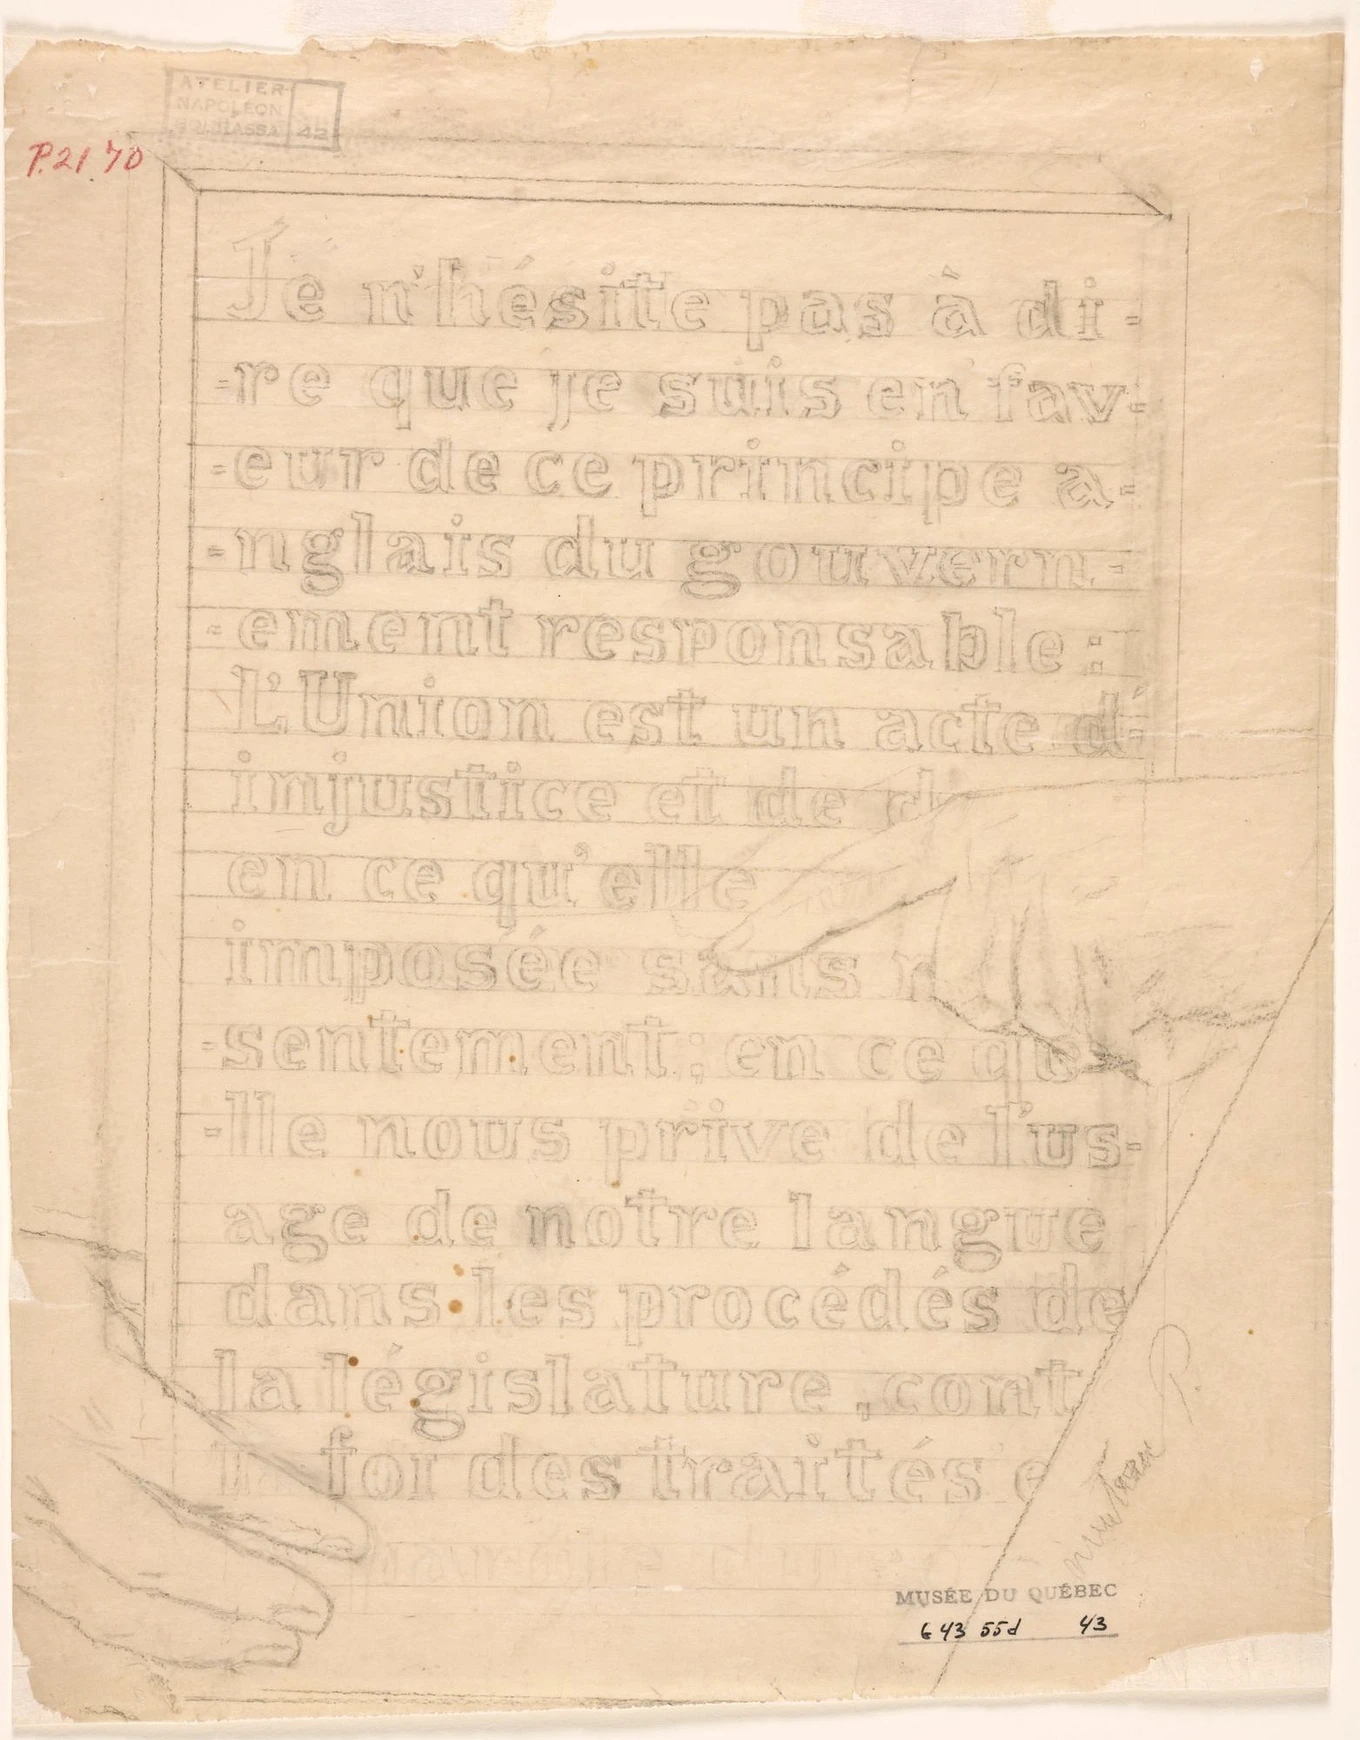 ATELIER
NAPOLÉON
BOURASSA 42
P.21.70
Je n'hésite pas à di-
-re que je suis en fav-
-eur de ce principe a-
-nglais du gouvern-
-ement responsable:
L'Union est un acte d'
injustice et de d
en ce qu'elle
imposée sans
-sentement; en ce que
-lle nous prive de l'us-
age de notre langue
dans les procédés de
la législature, cont
foi des traités e
MUSÉE DU QUÉBEC
G 43 55d 43